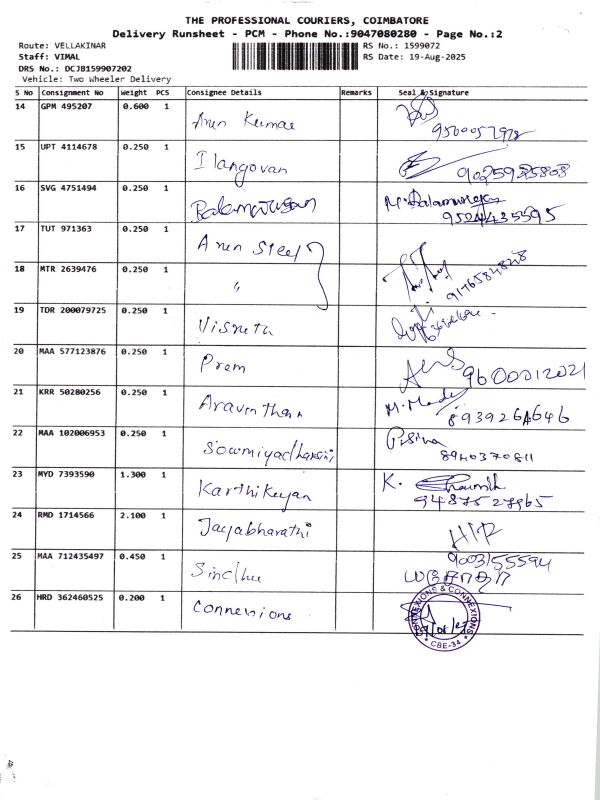 THE PROFESSIONAL COURIERS, COIMBATORE
Delivery Runsheet - PCM - Phone No.:9047080280 - Page No.:2
Route: VELLAKINAR RS No.: 1599072
Staff: VIMAL RS Date: 19-Aug-2025
DRS No.: DCJB159907202
Vehicle: Two Wheeler Delivery
S No Consignment No Weight PCS Consignee Details Remarks Seal & Signature
14 GPM 495207 0.600 1 Arun Kumar
15 UPT 4114678 0.250 1 Ilangovan
16 SVG 4751494 0.250 1 Balamurugan M. Balamurugan
17 TUT 971363 0.250 1 Arun Steel
18 MTR 2639476 0.250 1 "
19 TDR 200079725 0.250 1
20 MAA 577123876 0.250 1 Prem 9600012021
21 KRR 50280256 0.250 1 Aravinthan
22 MAA 102006953 0.250 1 Sowmiyadharsini
8940370811
23 MYD 7393590 1.300 1 Karthikeyan K.
9487527965
24 RMD 1714566 2.100 1 Jayabharathi
9003155594
25 MAA 712435497 0.450 1 Sindhu
26 HRD 362460525 0.200 1 Connexions
CONNEXIONS & CONNEXIONS
* CBE-34 *